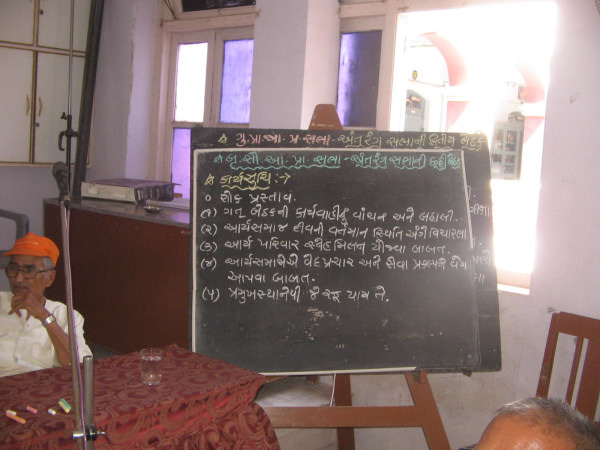 ગુ. પ્રા. આ. પ્ર સભા - અંતરંગ સભાની દ્વિતીય બેઠક
બૃ. સૌ. આ. પ્રા. સભા - અંતરંગ સભાની
કાર્યસૂચિ :-
૦ શોક પ્રસ્તાવ.
(૧) ગત બેઠકની કાર્યવાહીનું વાંચન અને બહાલી.
(૨) આર્યસમાજ દીવની વર્તમાન સ્થિતિ અંગે વિચારણા
(૩) આર્ય પરિવાર સ્નેહ મિલન યોજવા બાબત.
(૪) આર્યસમાજોએ વેદ પ્રચાર અને સેવા પ્રકલ્પને વેગ
આપવા બાબત.
(૫) પ્રમુખસ્થાનેથી જે રજૂ થાય તે.